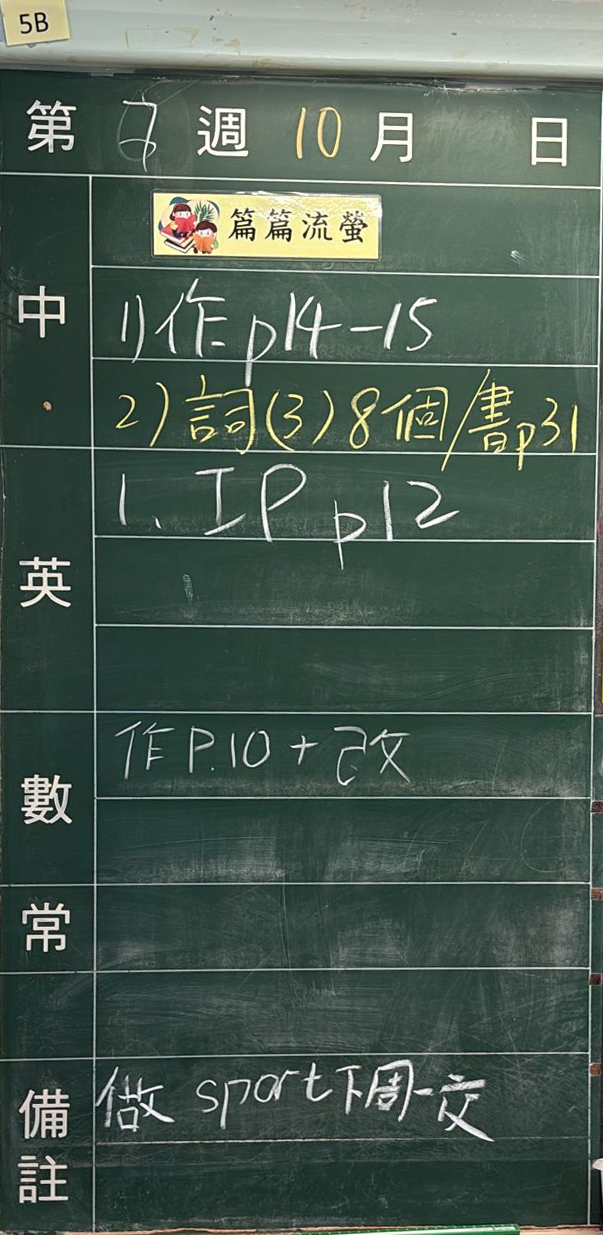 5B
第 週 10 月 日
篇篇流螢
中
1)作p14-15
2)詞(3)8個/書p31
英
1、IP p12
數
作P.10+改
常
備註
做 sport下周一交